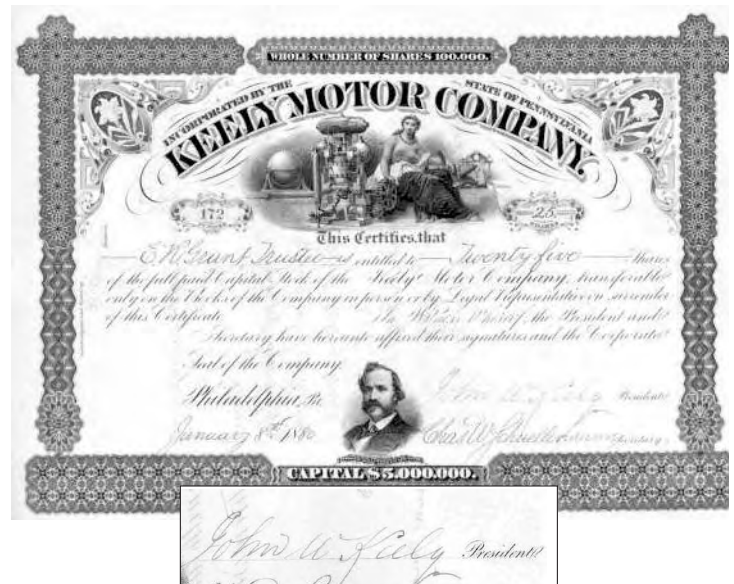 WHOLE NUMBER OF SHARES 100,000.
INCORPORATED BY THE STATE OF PENNSYLVANIA
KEELY MOTOR COMPANY.
172
25
This Certifies, that
E. K. Grant Trustee is entitled to Twenty five Shares
of the full paid Capital Stock of the Keely Motor Company, transferable
only on the Books of the Company in person or by Legal Representative on surrender
of this Certificate. In Witness Whereof, the President and
Secretary have hereunto affixed their signatures and the Corporate
Seal of the Company.
Philadelphia, Pa.
January 8th 1880
John W Keely President
Chas W Secretary
CAPITAL $5,000,000.
John W Keely President